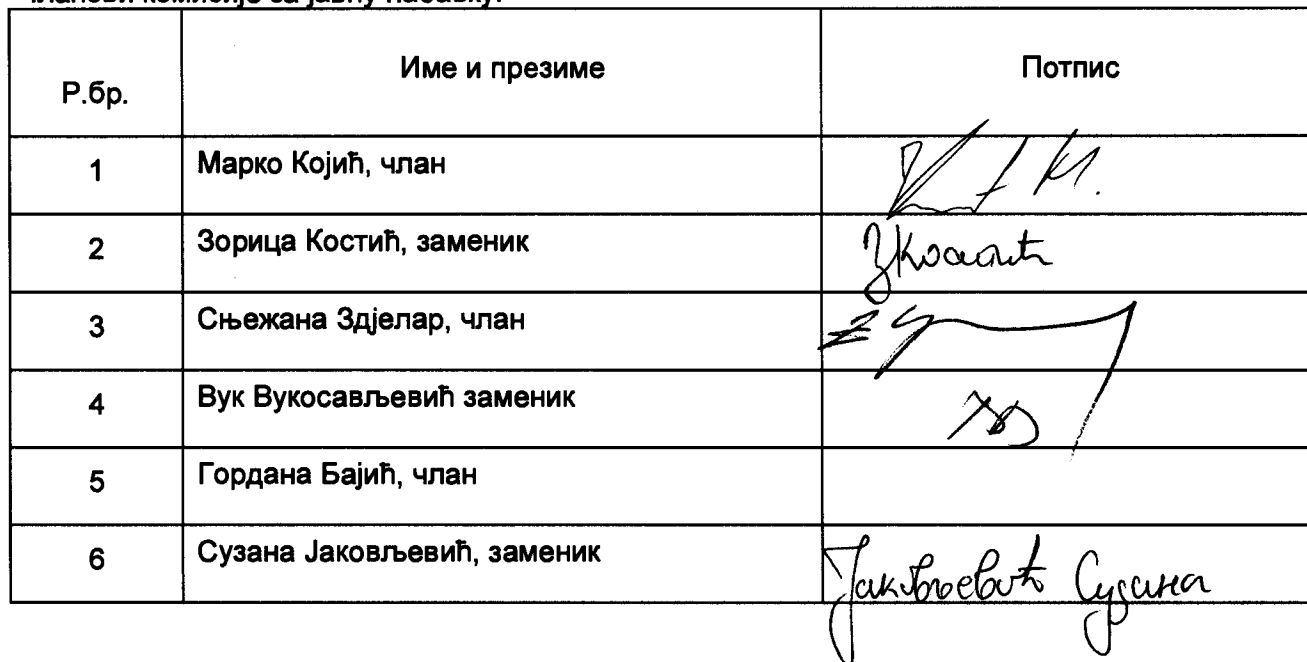 Чланови комисије за јавну набавку:
Р.бр. Име и презиме Потпис
1 Марко Којић, члан
2 Зорица Костић, заменик ЗКостић
3 Сњежана Здјелар, члан
4 Вук Вукосављевић заменик
5 Гордана Бајић, члан
6 Сузана Јаковљевић, заменик Јаковљевић Сузана